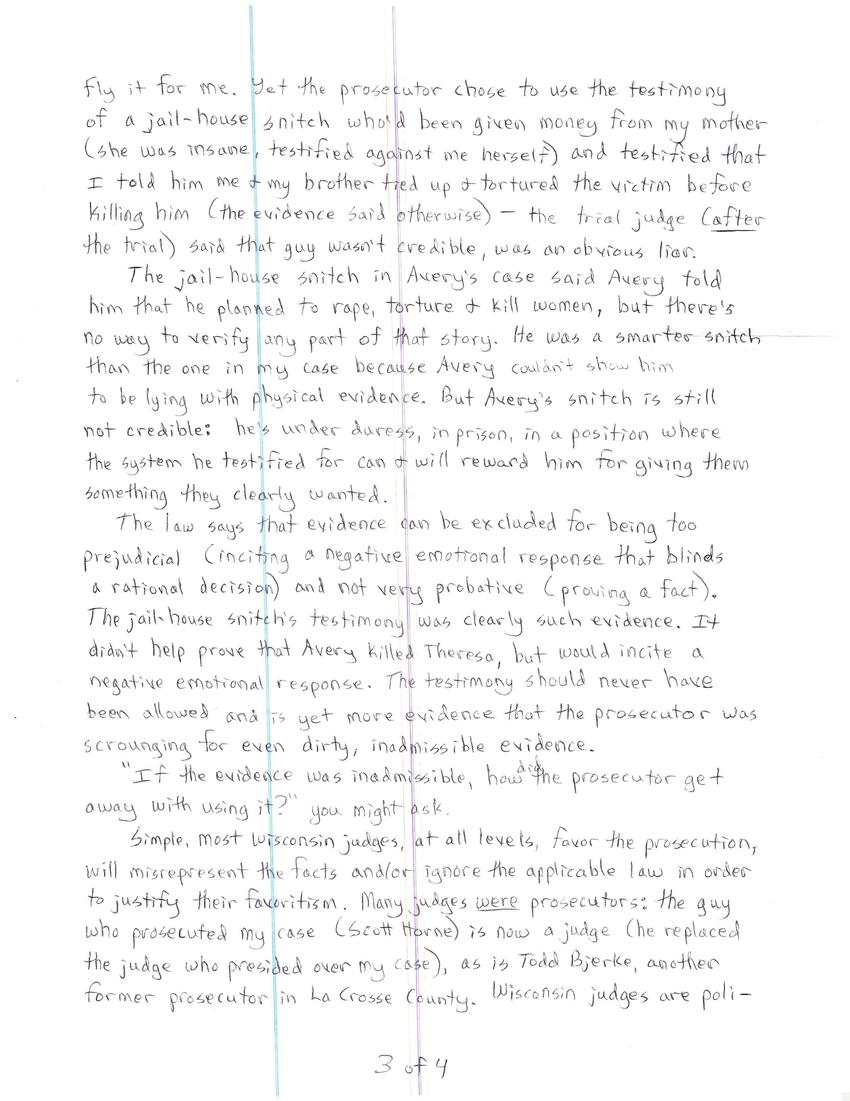 fly it for me. Yet the prosecutor chose to use the testimony
of a jail-house snitch who'd been given money from my mother
(she was insane, testified against me herself) and testified that
I told him me & my brother tied up & tortured the victim before
killing him (the evidence said otherwise) – the trial judge (after
the trial) said that guy wasn't credible, was an obvious liar.
The jail-house snitch in Avery's case said Avery told
him that he planned to rape, torture & kill women, but there's
no way to verify any part of that story. He was a smarter snitch
than the one in my case because Avery couldn't show him
to be lying with physical evidence. But Avery's snitch is still
not credible: he's under duress, in prison, in a position where
the system he testified for can & will reward him for giving them
something they clearly wanted.
The law says that evidence can be excluded for being too
prejudicial (inciting a negative emotional response that blinds
a rational decision) and not very probative (proving a fact).
The jail-house snitch's testimony was clearly such evidence. It
didn't help prove that Avery killed Theresa, but would incite a
negative emotional response. The testimony should never have
been allowed and is yet more evidence that the prosecutor was
scrounging for even dirty, inadmissible evidence.
"If the evidence was inadmissible, how did the prosecutor get
away with using it?" you might ask.
Simple, most Wisconsin judges, at all levels, favor the prosecution,
will misrepresent the facts and/or ignore the applicable law in order
to justify their favoritism. Many judges were prosecutors: the guy
who prosecuted my case (Scott Horne) is now a judge (he replaced
the judge who presided over my case), as is Todd Bjerke, another
former prosecutor in La Crosse County. Wisconsin judges are poli-
3 of 4